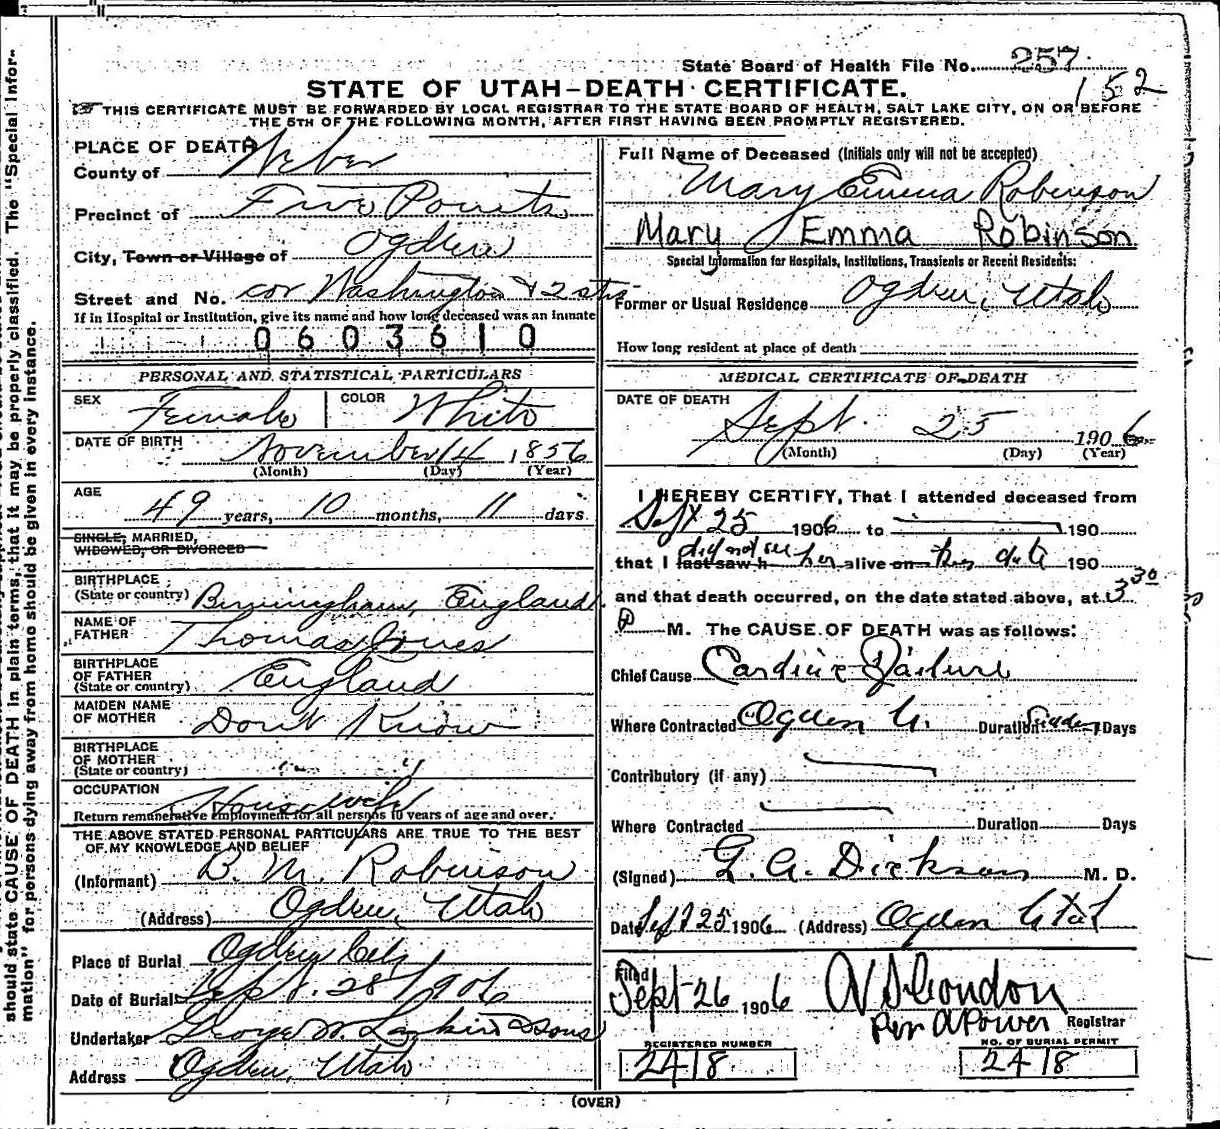 should state CAUSE OF DEATH in plain terms, that it may be properly classified. The "Special Infor-
mation" for persons dying away from home should be given in every instance.
State Board of Health File No. 257
152
STATE OF UTAH—DEATH CERTIFICATE.
THIS CERTIFICATE MUST BE FORWARDED BY LOCAL REGISTRAR TO THE STATE BOARD OF HEALTH, SALT LAKE CITY, ON OR BEFORE
THE 5TH OF THE FOLLOWING MONTH, AFTER FIRST HAVING BEEN PROMPTLY REGISTERED.
PLACE OF DEATH
County of Weber
Precinct of Five Points
City, Town or Village of Ogden
Street and No. cor Washington & 2 st
If in Hospital or Institution, give its name and how long deceased was an inmate
0603610
PERSONAL AND STATISTICAL PARTICULARS
SEX Female COLOR White
DATE OF BIRTH November 14 1856
(Month) (Day) (Year)
AGE
49 years, 10 months, 11 days
SINGLE, MARRIED,
WIDOWED, OR DIVORCED
BIRTHPLACE
(State or country) Birmingham, England
NAME OF
FATHER Thomas Jones
BIRTHPLACE
OF FATHER
(State or country) England
MAIDEN NAME
OF MOTHER Don't Know
BIRTHPLACE
OF MOTHER
(State or country) " "
OCCUPATION Housewife
Return remunerative employment for all persons 10 years of age and over.
THE ABOVE STATED PERSONAL PARTICULARS ARE TRUE TO THE BEST
OF MY KNOWLEDGE AND BELIEF
(Informant) B. M. Robinson
(Address) Ogden, Utah
Place of Burial Ogden City
Date of Burial Sept. 28 1906
Undertaker George W. Larkin & Sons
Address Ogden, Utah
Full Name of Deceased (Initials only will not be accepted)
Mary Emma Robinson
Mary Emma Robinson
Special Information for Hospitals, Institutions, Transients or Recent Residents:
Former or Usual Residence Ogden, Utah
How long resident at place of death
MEDICAL CERTIFICATE OF DEATH
DATE OF DEATH
Sept. 25 1906
(Month) (Day) (Year)
I HEREBY CERTIFY, That I attended deceased from
Sept 25 1906 to 190
did not see
that I last saw h her alive on this date 190
and that death occurred, on the date stated above, at 3 30
P M. The CAUSE OF DEATH was as follows:
Chief Cause Cardiac Failure
Where Contracted Ogden U. Duration Sudden Days
Contributory (if any)
Where Contracted Duration Days
(Signed) G. A. Dickson M. D.
Date Sept 25 1906 (Address) Ogden Utah
Filed
Sept 26 1906 Condon
per A Power Registrar
REGISTERED NUMBER NO. OF BURIAL PERMIT
2418 2418
(OVER)